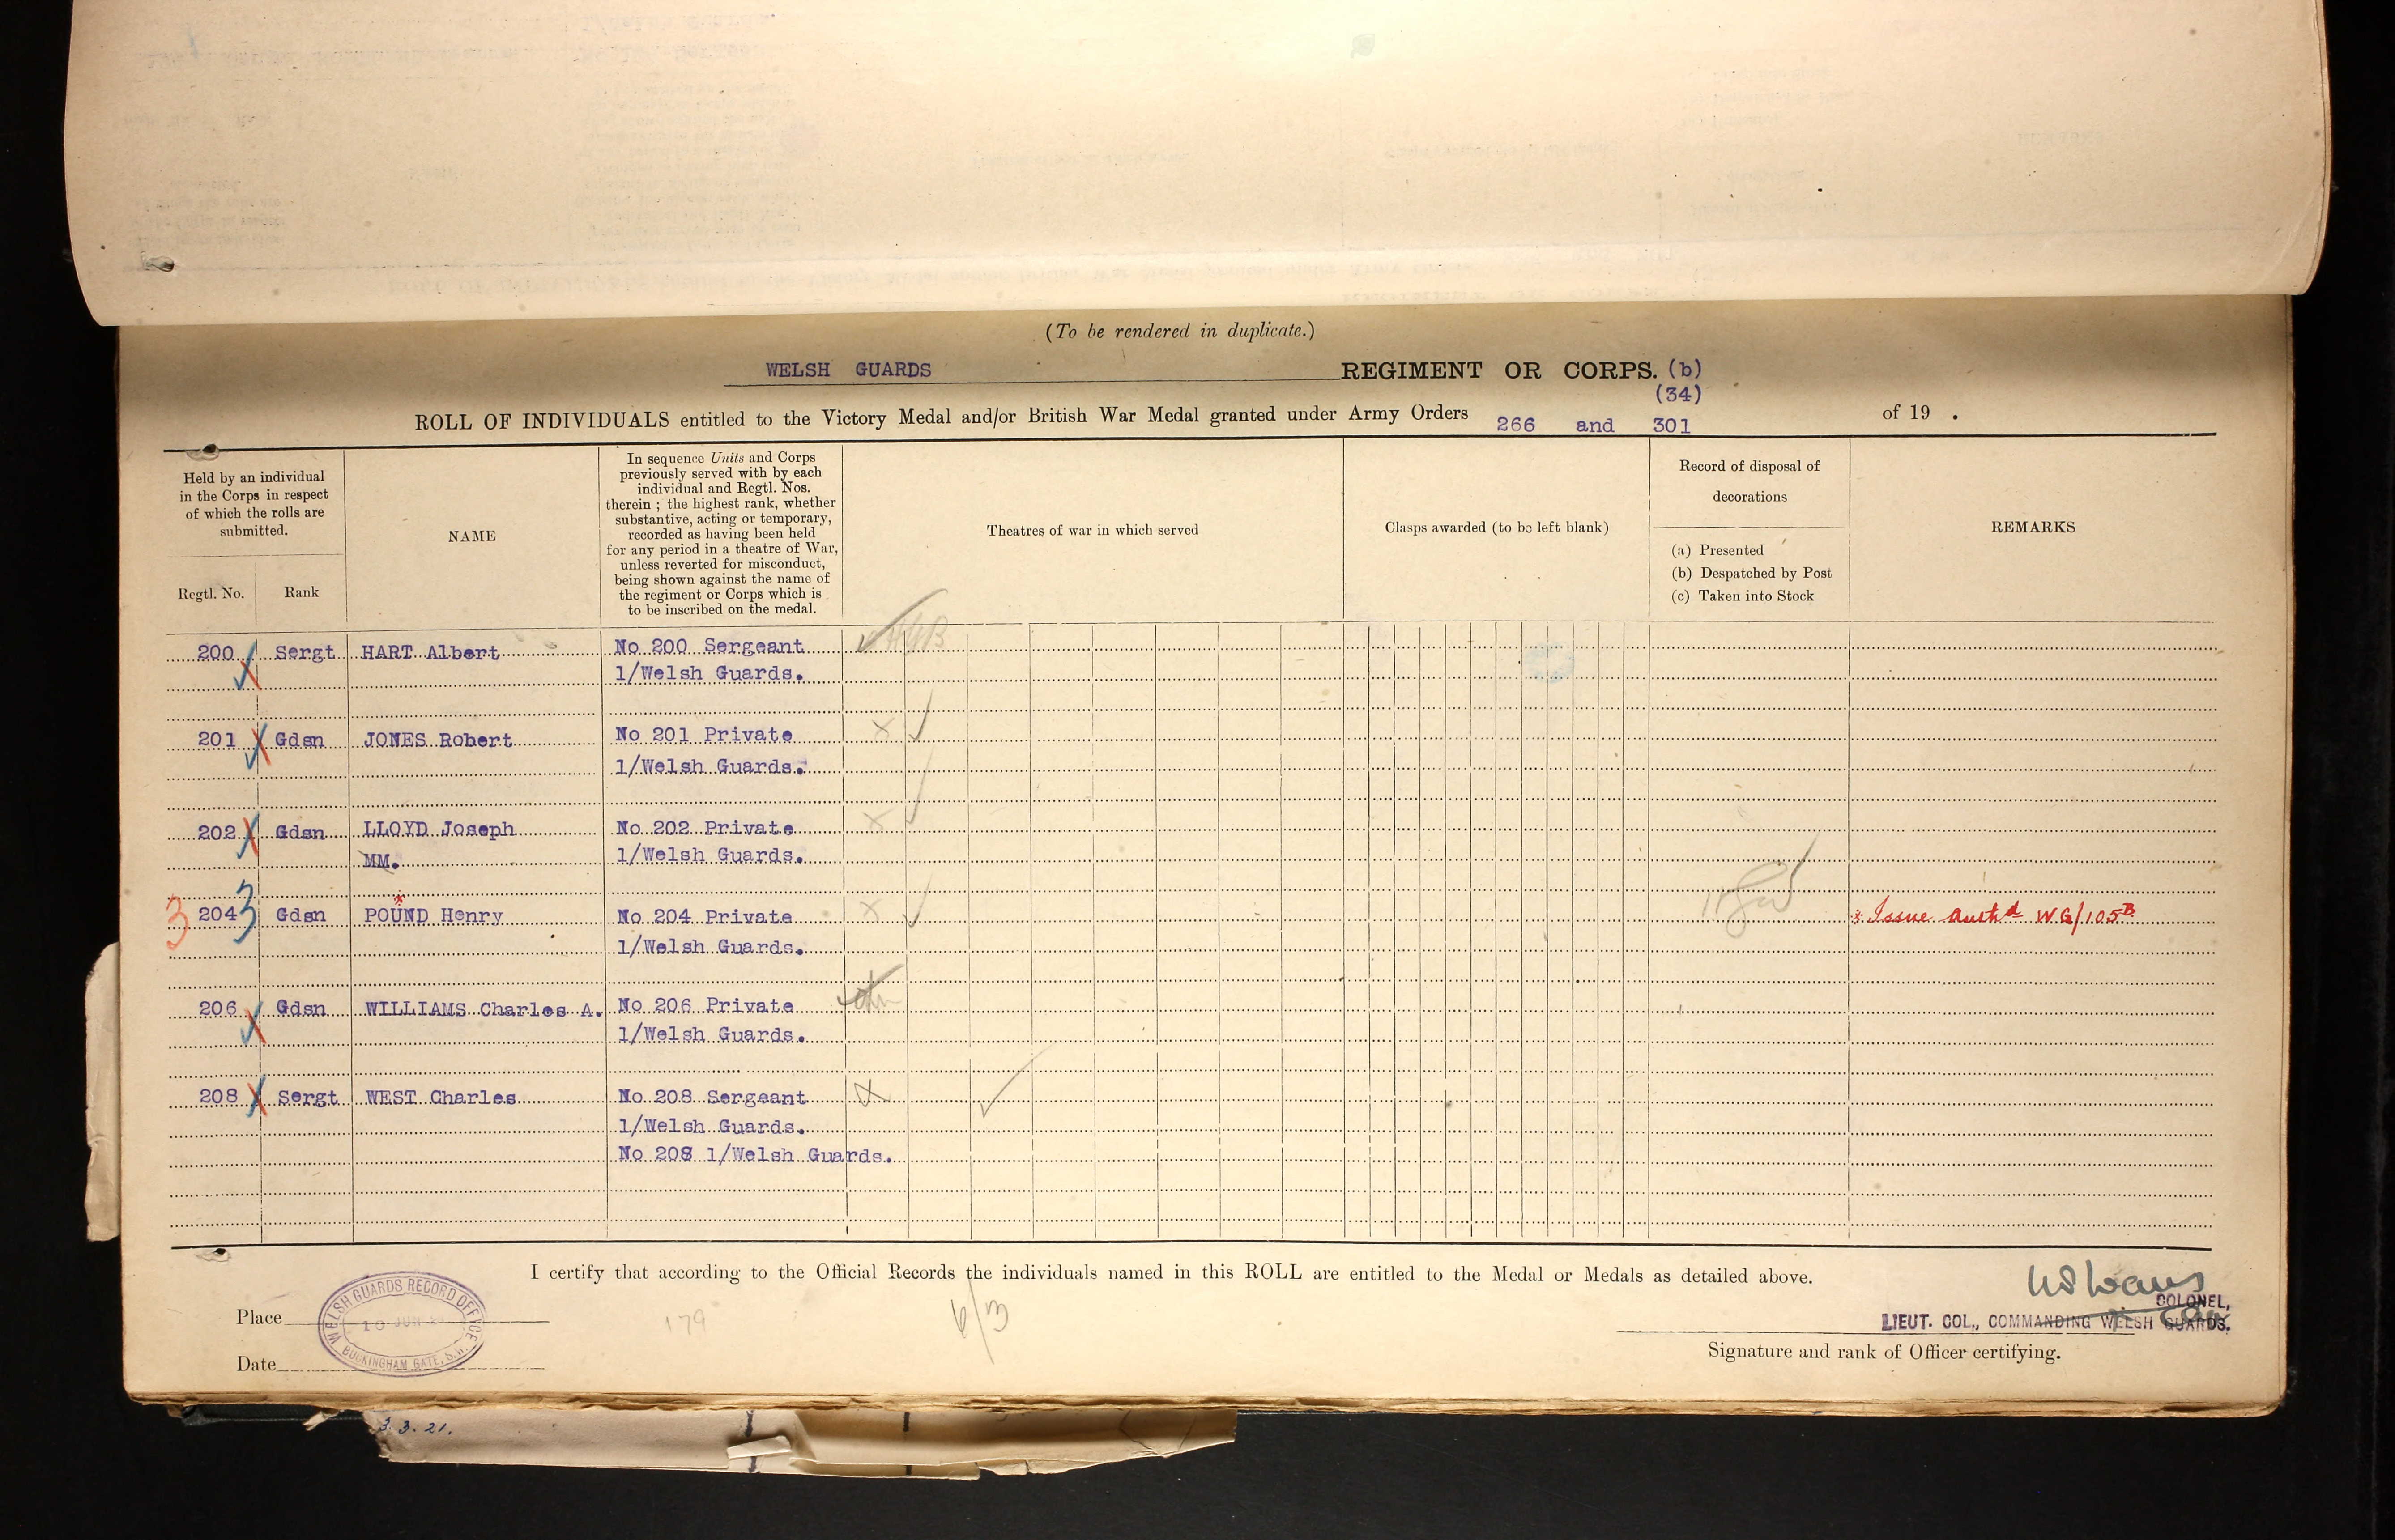 (To be rendered in duplicate.)
WELSH GUARDS REGIMENT OR CORPS. (b)
(34)
ROLL OF INDIVIDUALS entitled to the Victory Medal and/or British War Medal granted under Army Orders 266 and 301 of 19 .
Held by an individual
in the Corps in respect
of which the rolls are
submitted.
Regtl. No.
Rank
NAME
In sequence Units and Corps
previously served with by each
individual and Regtl. Nos.
therein ; the highest rank, whether
substantive, acting or temporary,
recorded as having been held
for any period in a theatre of War,
unless reverted for misconduct,
being shown against the name of
the regiment or Corps which is
to be inscribed on the medal.
Theatres of war in which served
Clasps awarded (to be left blank)
Record of disposal of
decorations
(a) Presented
(b) Despatched by Post
(c) Taken into Stock
REMARKS
200 Sergt HART Albert No 200 Sergeant
1/Welsh Guards.
201 Gdsn JONES Robert No 201 Private
1/Welsh Guards.
202 Gdsn LLOYD Joseph No 202 Private
MM. 1/Welsh Guards.
3 204 3 Gdsn POUND Henry No 204 Private * Issue authd WG/105B
1/Welsh Guards.
206 Gdsn WILLIAMS Charles A. No 206 Private
1/Welsh Guards.
208 Sergt WEST Charles No 208 Sergeant
1/Welsh Guards.
No 208 1/Welsh Guards.
I certify that according to the Official Records the individuals named in this ROLL are entitled to the Medal or Medals as detailed above.
Place
Date
WELSH GUARDS RECORD OFFICE
10 JUN
BUCKINGHAM GATE, S.W.
179
COLONEL,
LIEUT. COL., COMMANDING WELSH GUARDS.
Signature and rank of Officer certifying.
3.3.21.